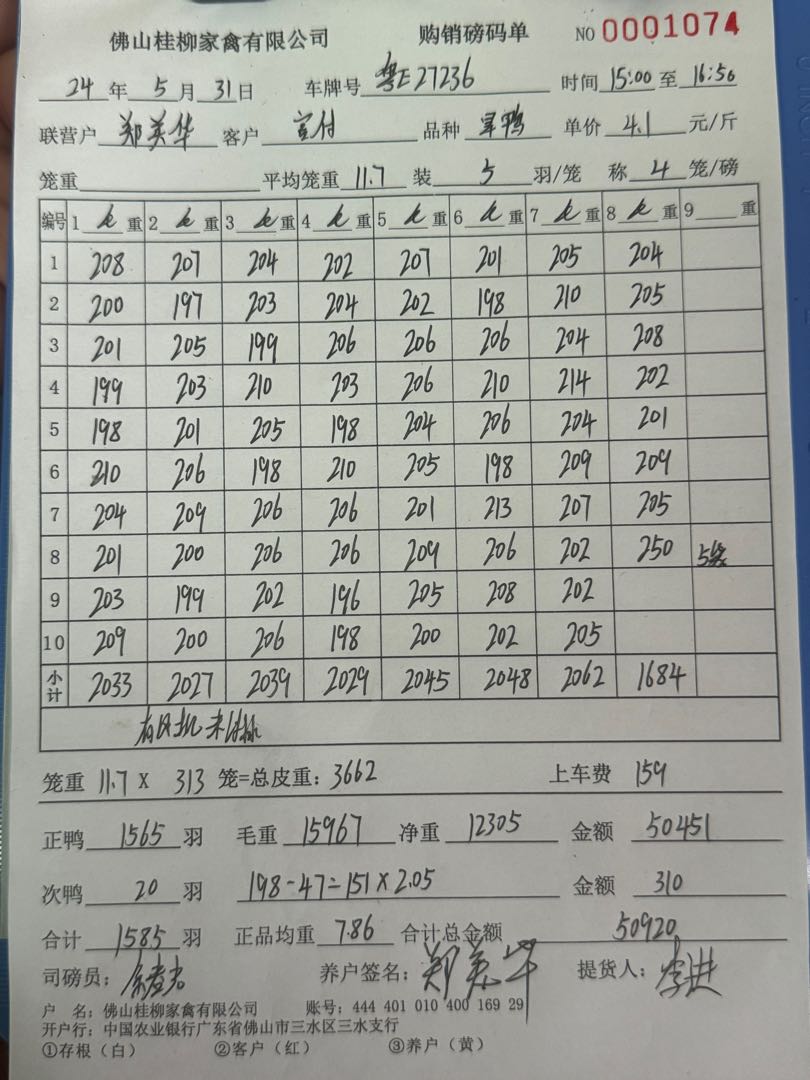 佛山桂柳家禽有限公司 购销磅码单 NO 0001074
24 年 5 月 31 日 车牌号 粤E27236 时间 15:00 至 16:50
联营户 郑英华 客户 品种 单价 4.1 元/斤
笼重 平均笼重 11.7 装 5 羽/笼 称 4 笼/磅
编号 1 重 2 重 3 重 4 重 5 重 6 重 7 重 8 重 9 重
1 208 207 204 202 207 201 205 204
2 200 197 203 204 202 198 210 205
3 201 205 199 206 206 206 204 208
4 199 203 210 203 206 210 214 202
5 198 201 205 198 204 206 204 201
6 210 206 198 210 205 198 209 209
7 204 209 206 206 201 213 207 205
8 201 200 206 206 209 206 202 250 5笼
9 203 199 202 196 205 208 202
10 209 200 206 198 200 202 205
小计 2033 2027 2039 2029 2045 2048 2062 1684
笼重 11.7 X 313 笼=总皮重: 3662 上车费 159
正鸭 1565 羽 毛重 15967 净重 12305 金额 50451
次鸭 20 羽 198-47=151×2.05 金额 310
合计 1585 羽 正品均重 7.86 合计总金额 50920
司磅员: 养户签名: 郑英华 提货人: 李进
户 名: 佛山桂柳家禽有限公司 账号: 444 401 010 400 169 29
开户行: 中国农业银行广东省佛山市三水区三水支行
①存根（白） ②客户（红） ③养户（黄）